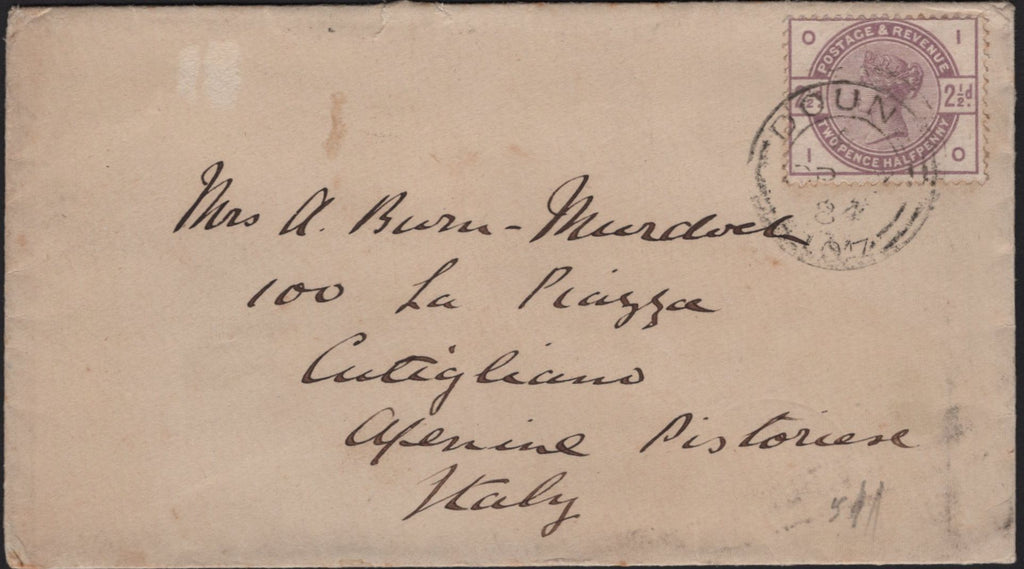 O POSTAGE & REVENUE I
2½d.
I TWO PENCE HALFPENNY O
DOUNE
84
197
Mrs A. Burn-Murdoch
100 La Piazza
Cutigliano
Apenine Pistoriese
Italy